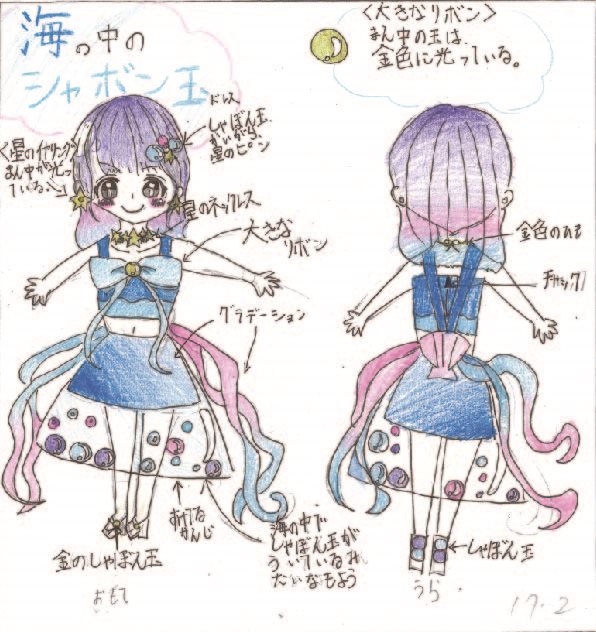 海の中の
シャボン玉
<大きなリボン>
まん中の玉は
金色に光っている。
しゃぼん玉
かいがら
星のピン
<星のイヤリング>
まん中が光っ
ている
星のネックレス
大きな
リボン
グラデーション
金色のひも
チャック
すけてる
かんじ
海の中で
しゃぼん玉が
ういているみ
たいなもよう
金のしゃぼん玉
おもて
しゃぼん玉
うら
17.2